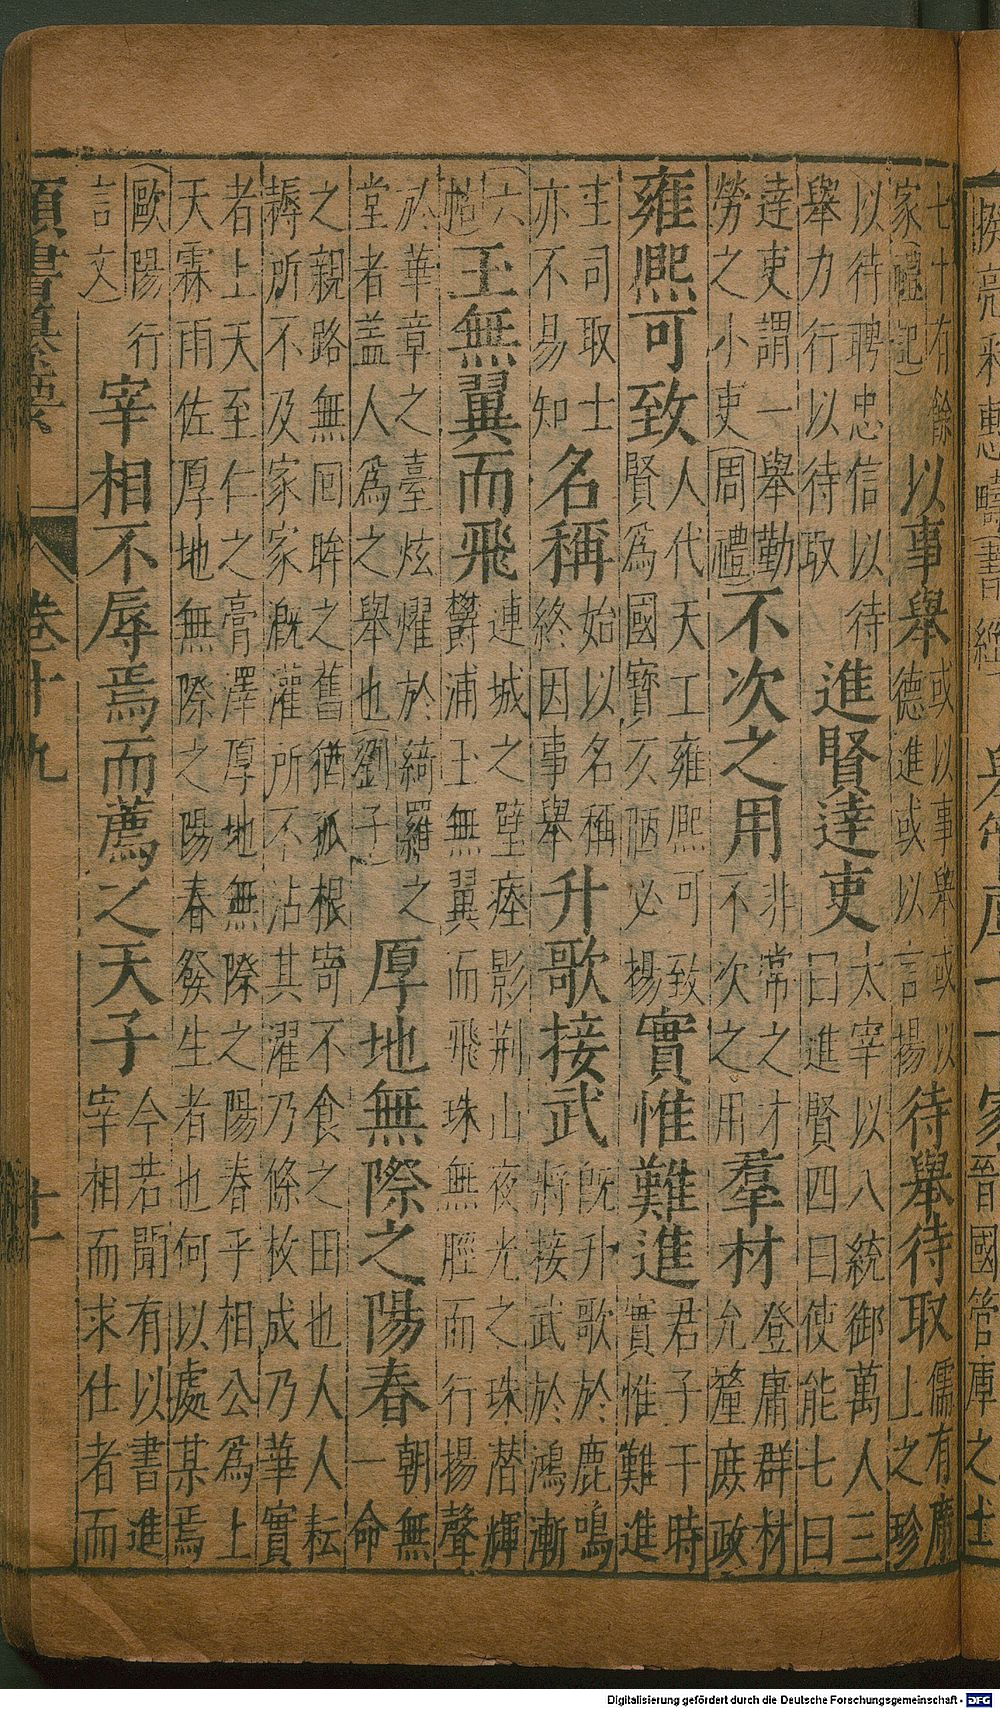 揆亮采惠疇(書經)
晉國管庫之士
七十有餘
家(禮記)
以事舉
或以事舉或以
德進或以言揚
待舉待取
儒有席
上之珍
以待聘忠信以待
舉力行以待取
進賢達吏
太宰以八統御萬人三
曰進賢四曰使能七曰
達吏謂一舉勤
勞之小吏(周禮)
不次之用
非常之才
不次之用
羣材
登庸群材
允釐庶政
雍熙可致
人代天工雍熙可致
賢為國寶亥陋必揚
實惟難進
君子干時
實惟難進
主司取士
亦不易知
名稱
始以名稱
終因事舉
升歌接武
既升歌於鹿鳴
將接武於鴻漸
(六
帖)
玉無翼而飛
連城之璧瘞影荊山夜光之珠潜輝
鬱浦玉無翼而飛珠無脛而行揚聲
於華章之臺炫燿於綺羅之
堂者盖人為之舉也(劉子)
厚地無際之陽春
朝無
一命
之親路無囘眸之舊猶孤根寄不食之田也人人耘
耨所不及家家溉灌所不沾其濯乃條枚成乃華實
者上天至仁之膏澤厚地無際之陽春乎相公為上
天霖雨佐厚地無際之陽春發生者也何以處某焉
(歐陽行
言文)
宰相不辱焉而薦之天子
今若聞有以書進
宰相而求仕者而
類書纂要
卷十九
廿一
Digitalisierung gefördert durch die Deutsche Forschungsgemeinschaft - DFG